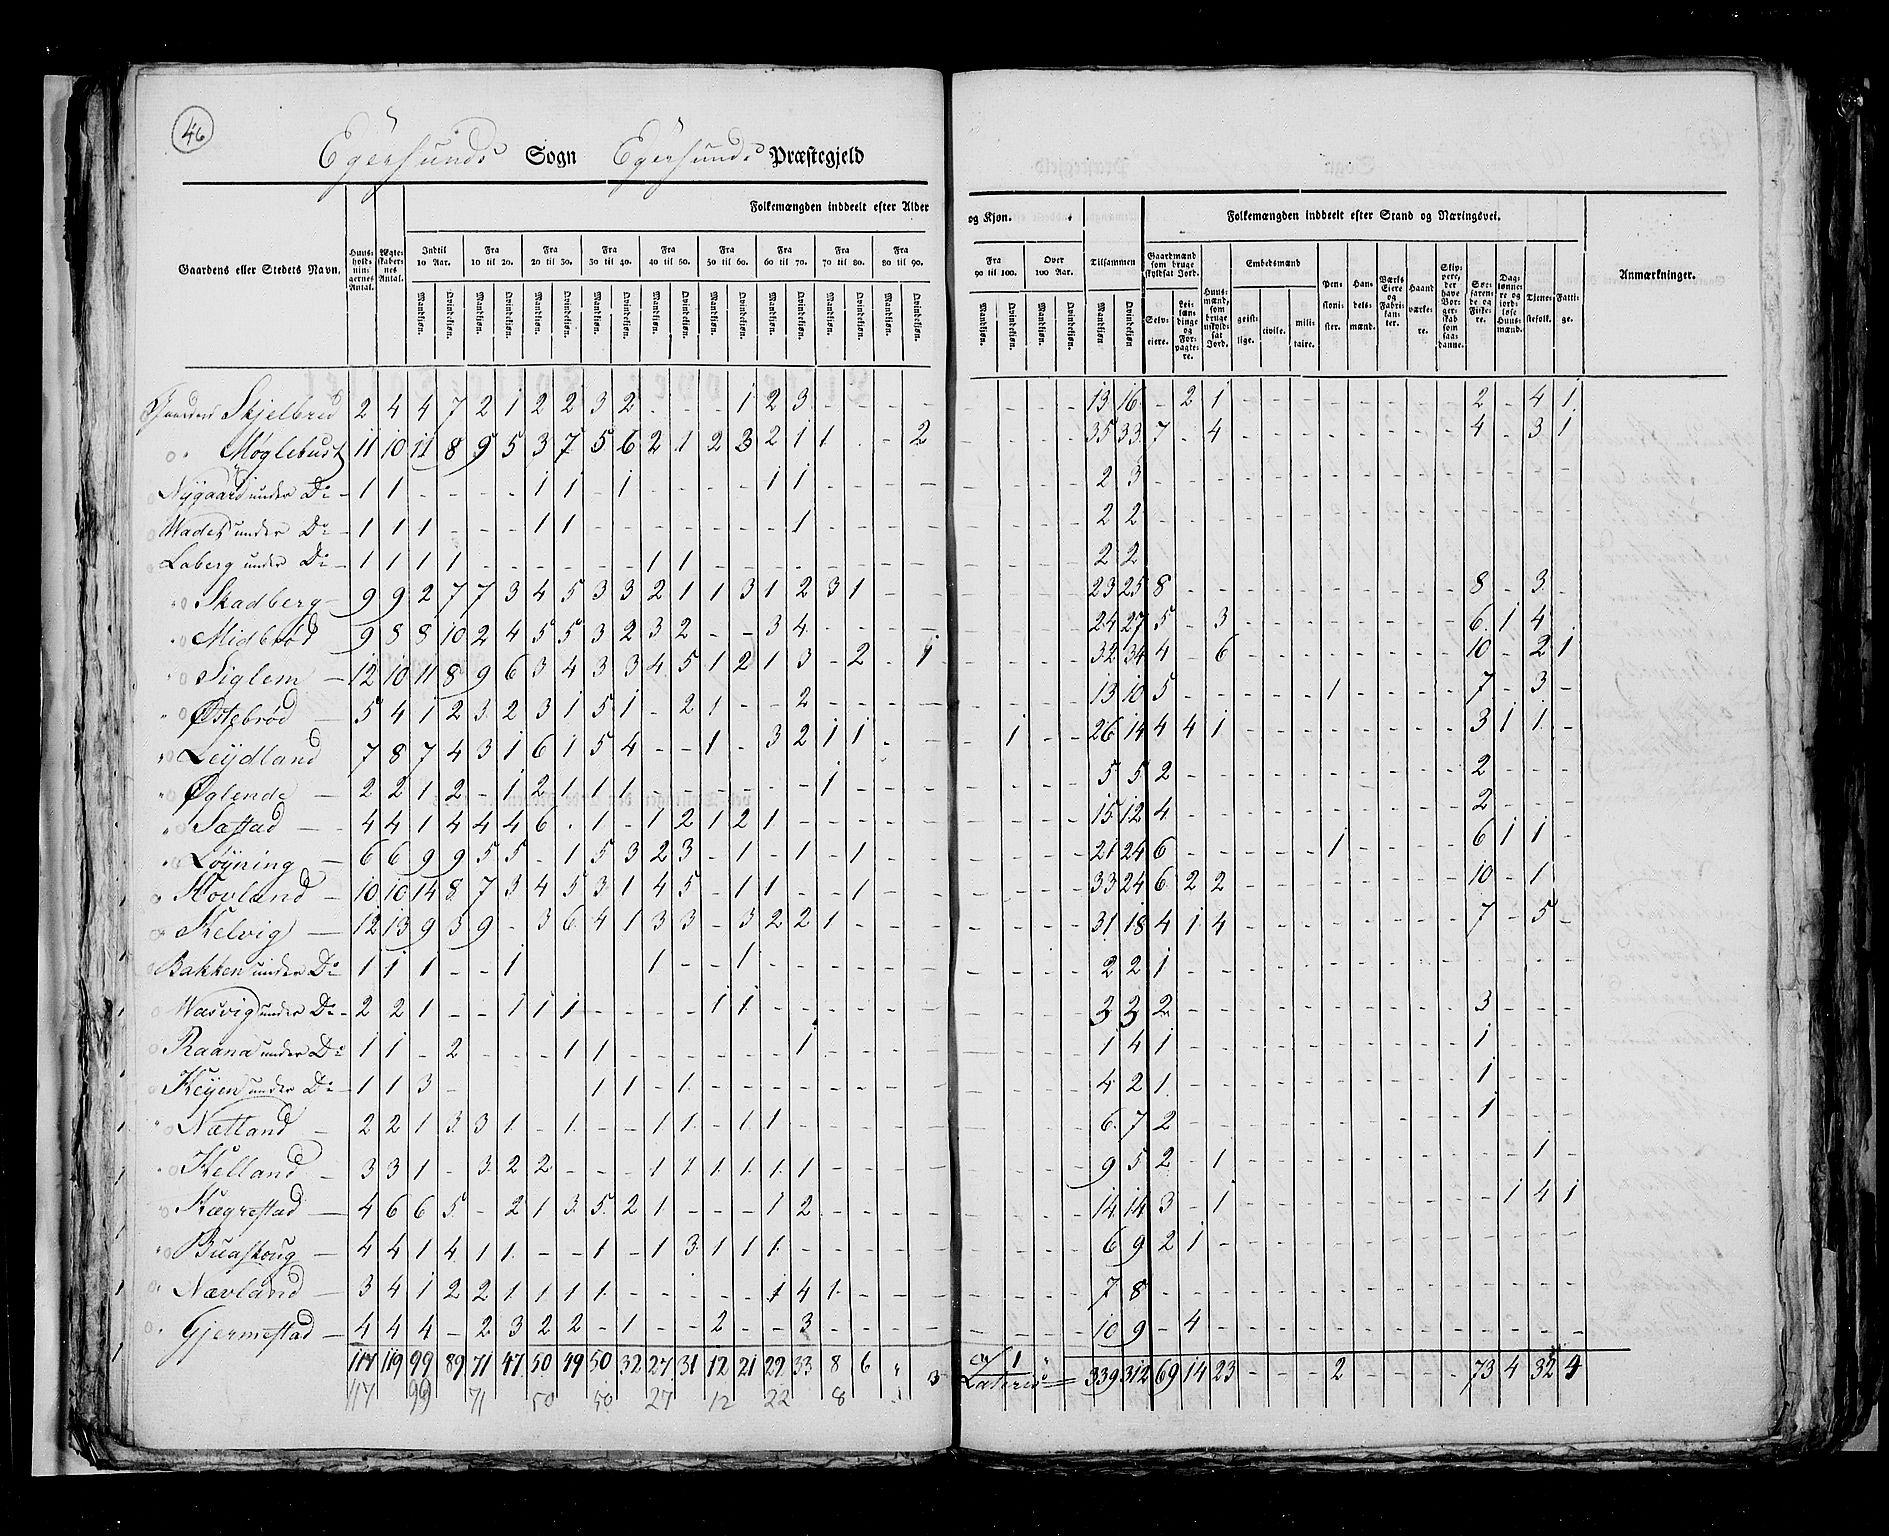 46
Egersunds Sogn Egersunds Præstegjeld
Folkemængden inddeelt efter Alder og Kjøn. Folkemængden inddeelt efter Stand og Næringsvei.
Gaardens eller Stedets Navn. Huusholdningernes Antal. Ægteskabernes Antal. Indtil 10 Aar. Fra 10 til 20. Fra 20 til 30. Fra 30 til 40. Fra 40 til 50. Fra 50 til 60. Fra 60 til 70. Fra 70 til 80. Fra 80 til 90. Fra 90 til 100. Over 100 Aar. Tilsammen Gaardmænd som bruge skyldsat Jord. Huusmænd, som bruge uskyldsat Jord. Embedsmænd Pensionister. Handelsmænd. Værks Eiere og Fabrikanter. Haandværkere. Skippere, der have Borgerskab som saadanne. Søfarende og Fiskere. Daglønnere og jordløse Huusmænd. Tjenestefolk. Fattige. Anmærkninger.
Mandkjøn. Qvindekjøn. Mandkjøn. Qvindekjøn. Mandkjøn. Qvindekjøn. Mandkjøn. Qvindekjøn. Mandkjøn. Qvindekjøn. Mandkjøn. Qvindekjøn. Mandkjøn. Qvindekjøn. Mandkjøn. Qvindekjøn. Mandkjøn. Qvindekjøn. Mandkjøn. Qvindekjøn. Mandkjøn. Qvindekjøn. Mandkjøn Qvindekjøn Selveiere. Leilændinge og Forpagtere. geistlige. civile. militaire.
Gaarden Skjelbred 2 4 4 7 2 1 2 2 3 2 - - - 1 2 3 - - - - - - - - 13 16 - 2 1 - - - - - - - - 2 - 4 1
" Møglebust 11 10 11 8 9 5 3 7 5 6 2 1 2 3 2 1 1 - - 2 - - - - 35 33 7 - 4 - - - - - - - - 4 - 3 1
Nygaard under Do - 1 1 - - - - 1 1 - 1 - - - - 1 1 - - - - - - - - 2 3 - - - - - - - - - - - - - - -
Wades under Do - 1 1 1 - - - 1 1 - - - - - - - 1 - - - - - - - - 2 2 - - - - - - - - - - - - - - -
Laberg under Do - 1 1 1 1 - - - - - - 1 1 - - - - - - - - - - - - 2 2 - - - - - - - - - - - - - - -
" Skadberg - 9 9 2 7 7 3 4 5 3 3 2 1 1 3 1 2 3 1 - - - - - - 23 25 8 - - - - - - - - - - 8 - 3 -
" Midbrød 9 8 8 10 2 4 5 5 3 2 3 2 - - 3 4 - - - - - - - - 24 27 5 - 3 - - - - - - - - 6 1 4 -
" Siglem - 12 10 11 8 9 6 3 4 3 3 4 5 1 2 1 3 - 2 - 1 - - - - 32 34 4 - 6 - - - - - - - - 10 - 2 1
" Østebrød - 5 4 1 2 3 2 3 1 5 1 - 2 1 - - 2 - - - - - - - - 13 10 5 - - - - - 1 - - - - 7 - 3 -
" Leydland 7 8 7 4 3 1 6 1 5 4 - - 1 - 3 2 1 1 - - - 1 - - 26 14 4 4 1 - - - - - - - - 3 1 1 -
" Øglende - 2 2 1 2 - 1 2 1 1 1 - - - - - - 1 - - - - - - - 5 5 2 - - - - - - - - - - 2 - - -
" Sæstad - 4 4 1 4 4 4 6 - 1 - 1 2 1 2 1 - - - - - - - - - 15 12 4 - - - - - - - - - - 2 - - -
" Løyning - 6 6 9 9 5 5 - 1 5 3 2 3 - 1 - 1 - 1 - - - - - - 21 24 6 - - - - - 1 - - - - 6 1 1 -
" Hovland - 10 10 14 8 7 3 4 5 3 1 4 5 - 1 1 - - 1 - - - - - - 33 24 6 2 2 - - - - - - - - 10 - 1 -
" Kelvig - 12 13 9 3 9 - 3 6 4 1 3 3 - 3 2 2 1 - - - - - - - 31 18 4 1 4 - - - - - - - - 7 - 5 -
Bakken under Do - 1 1 1 - - 1 - - - - 1 - - 1 - - - - - - - - - - 2 2 1 - - - - - - - - - - - - - -
Wasvig under Do - 2 2 1 - - 1 1 1 - - - - 1 1 - - - - - - - - - - 3 3 2 - - - - - - - - - - 3 - - -
Raana under Do 1 1 - 2 - - - 1 1 - - - - - - 1 - - - - - - - - 1 4 1 - - - - - - - - - - 1 - - -
Keyen under Do - 1 1 3 - - - - - 1 1 - 1 - - - - - - - - - - - - 4 2 1 - - - - - - - - - - 1 - - -
" Nætland - 2 2 1 3 3 1 - 1 - - 1 1 - 1 1 - - - - - - - - - 6 7 2 - - - - - - - - - - 1 - - -
" Helland - 3 3 1 - 3 2 2 - - - 1 1 1 1 1 1 - - - - - - - - 9 5 2 - 1 - - - - - - - - - - 1 -
" Hægrestad - 4 6 6 5 - 2 1 3 5 2 1 - - - 1 2 - - - - - - - - 14 14 3 - 1 - - - - - - - - - 1 4 1
" Buaskoug - 4 4 1 4 1 1 - - 1 - 1 3 1 1 1 - - - - - - - - - 6 9 2 1 - - - - - - - - - - - - -
" Nævland - 3 4 1 2 2 1 1 1 1 - - - - - 1 4 1 - - - - - - - 7 8 - - - - - - - - - - - - - - -
" Gjermestad - 4 4 4 - 2 3 2 2 - 1 - - 2 - - 3 - - - - - - - - 10 9 - 4 - - - - - - - - - - - -
117 119 99 89 71 47 50 49 50 32 27 31 12 21 22 33 8 6 " 3 1 " Lateris 339 312 69 14 23 - - - 2 - - - - 73 4 32 4
117 99 71 50 50 27 12 22 8